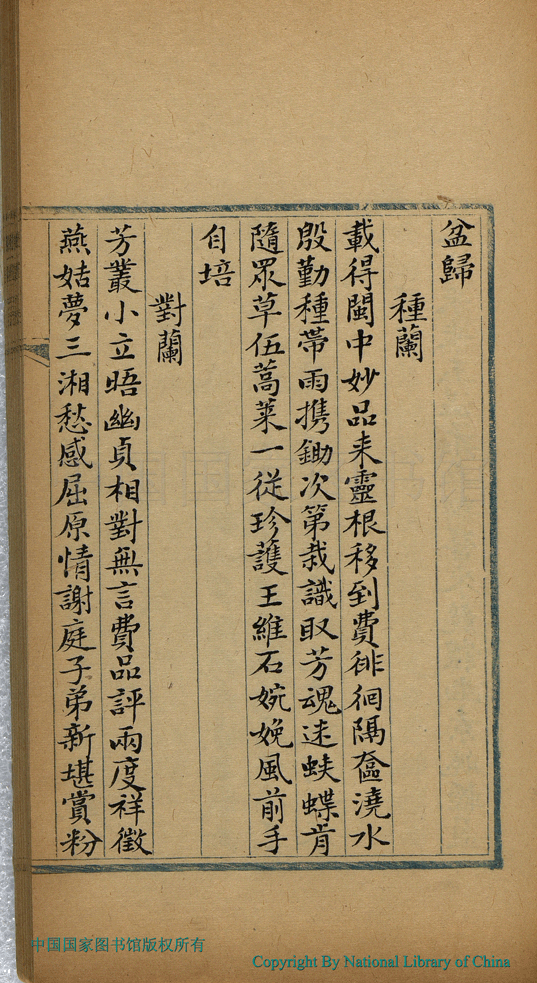 盆歸
種蘭
載得閩中妙品来靈根移到費徘徊隔奩澆水
殷勤種帶雨携鋤次第栽識取芳魂迷蛱蝶肯
隨眾草伍蒿萊一從珍護王維石婉娩風前手
自培
對蘭
芳叢小立晤幽貞相對無言費品評兩度祥徵
燕姑夢三湘愁感屈原情謝庭子弟新堪賞粉
中国国家图书馆版权所有
Copyright By National Library of China